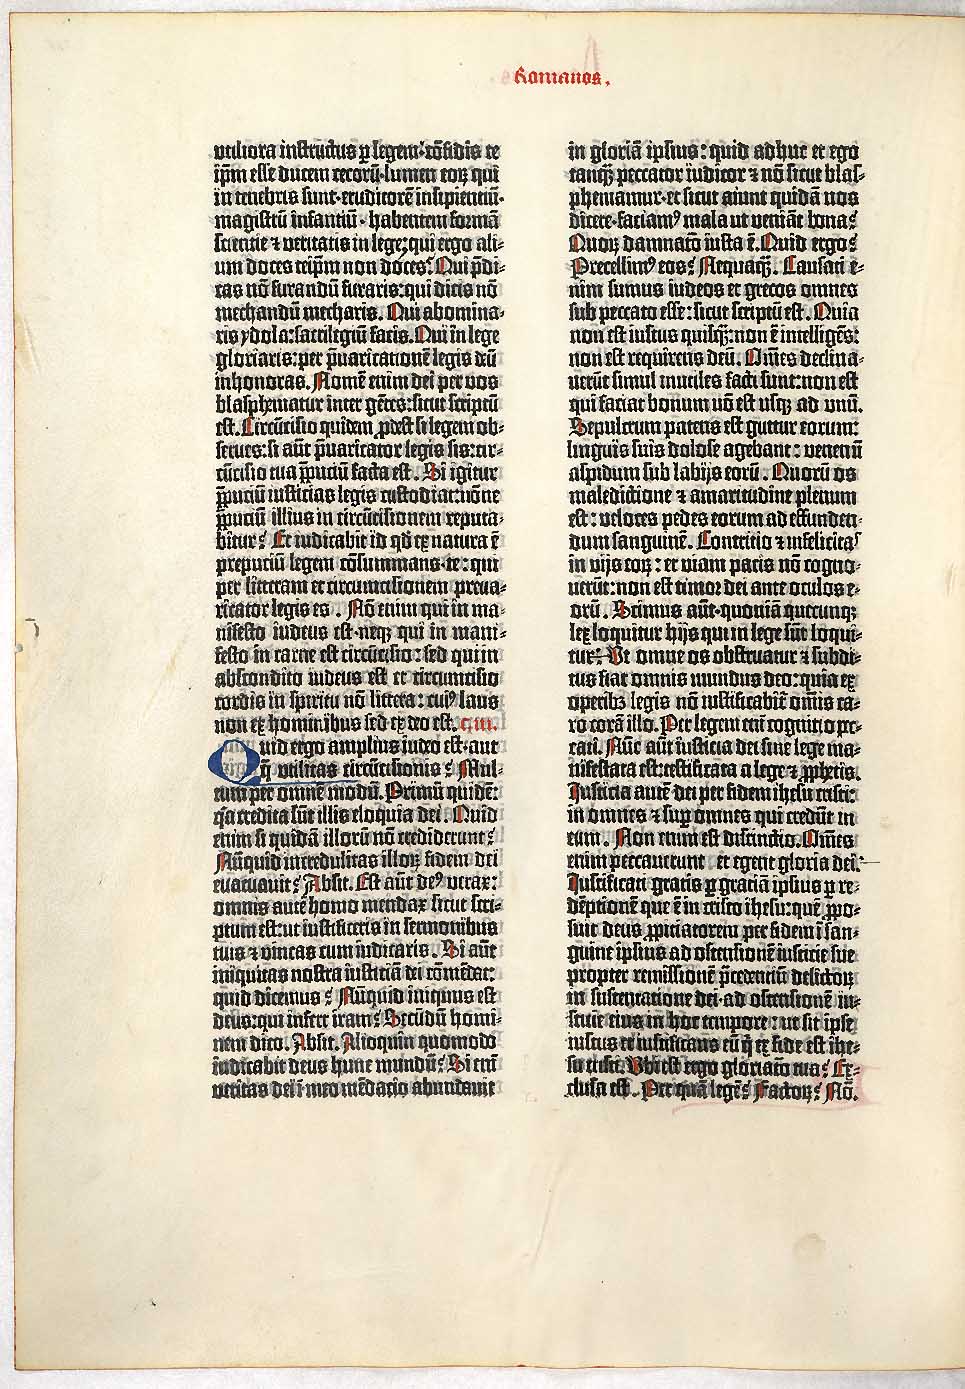 Romanos.
utiliora instructus p̲ legem·cōfidis te
ip̄m esse ducem cecorū·lumen eoꝝ qui
in tenebris sunt·eruditorē insipientiū·
magistrū infantiū·habentem formā
scientie ⁊ veritatis in lege; qui ergo ali-
um doces teip̄m non doces? Qui p̄di-
cas nō furandū furaris: qui dicis nō
mechandū mecharis. Qui abomina-
ris ydola: sacrilegiū facis. Qui in lege
gloriaris: per p̄uaricationē legis deū
inhonoras. Nomē enim dei per vos
blasphematur inter gētes: sicut scriptū
est. Circūcisio quidem ꝓdest si legem ob-
serues: si aūt p̄uaricator legis sis: cir-
cūcisio tua p̄puciū facta est. Si igitur
p̄puciū iusticias legis custodiat: nōne
p̄puciū illius in circūcisionem reputa-
bitur? Et iudicabit id qd̄ ex natura ē
prepuciū legem cōsummans·te: qui
per litteram et circumcisionem preua-
ricator legis es. Nō enim qui in ma-
nifesto iudeus est·neqꝫ qui in mani-
festo in carne est circūcisio: sed qui in
abscondito iudeus est et circumcisio
cordis in spiritu nō littera: cuiꝰ laus
non ex hominibus sed ex deo est. c.iii.
Quid ergo amplius iudeo est·aut
q̄ utilitas circūcisionis? Mul-
tum per omnē modū. Primū quidē:
q̄a credita sūt illis eloquia dei. Quid
enim si quidā illorū nō crediderunt?
Nūquid incredulitas illoꝝ fidem dei
euacuauit? Absit. Est aūt deꝰ verax:
omnis autē homo mendax sicut scri-
ptum est: ut iustificeris in sermonibus
tuis ⁊ vincas cum iudicaris. Si aūt
iniquitas nostra iusticiā dei cōmēdat:
quid dicemus? Nūquid iniquus est
deus: qui infert iram? Secūdū homi-
nem dico. Absit. Alioquin quomodo
iudicabit deus hunc mundū? Si enī
veritas dei ī meo mēdacio abundauit
in gloriā ipsius: quid adhuc et ego
tanqꝫ peccator iudicor ⁊ nō sicut blas-
phemamur·et sicut aiunt quidā nos
dicere·faciamꝰ mala ut veniāt bona?
Quoꝝ damnatō iusta ē. Quid ergo?
Precellimꝰ eos? Nequaqꝫ. Causati e-
nim sumus iudeos et grecos omnes
sub peccato esse: sicut scriptū est. Quia
non est iustus quisqꝫ: non ē intelligēs:
non est requirens deū. Om̄es declina-
uerūt simul inutiles facti sunt: non est
qui faciat bonum nō est usqꝫ ad unū.
Sepulcrum patens est guttur eorum:
linguis suis dolose agebant: venenū
aspidum sub labijs eorū. Quorū os
maledictione ⁊ amaritudine plenum
est: veloces pedes eorum ad effunden-
dum sanguinē. Contritio ⁊ infelicitas
in vijs eoꝝ: et viam pacis nō cogno-
uerūt: non est timor dei ante oculos e-
orū. Scimus aūt·quoniā quecunqꝫ
lex loquitur hijs qui in lege sūt loqui-
tur: Ut omne os obstruatur ⁊ subdi-
tus fiat omnis mundus deo: quia ex
operibꝫ legis nō iustificabit̄ om̄is ca-
ro corā illo. Per legem enī cognitio pec-
cati. Nūc aūt iusticia dei sine lege ma-
nifestata est: testificata a lege ⁊ ꝓphetis.
Iusticia autē dei per fidem ihesu cristi:
in omnes ⁊ sup̲ omnes qui credūt in
eum. Non enim est distinctio. Om̄es
enim peccauerunt et egent gloria dei:
Iustificati gratis p̲ gratiā ipsius p̲ re-
dēptionē que ē in cristo ihesu: quē ꝓpo-
suit deus ꝓpiciatorem per fidem ī san-
guine ipsius ad ostensionē iusticie sue
propter remissionē p̄cedentiū delictoꝝ
in sustentatione dei·ad ostensionē iu-
sticie eius in hoc tempore: ut sit ipse
iustus et iustificans eū q̄ ex fide est ihe-
su cristi. Ubi est ergo gloriatō tua? Ex-
clusa est. Per quā legē? Factoꝝ? Nō.